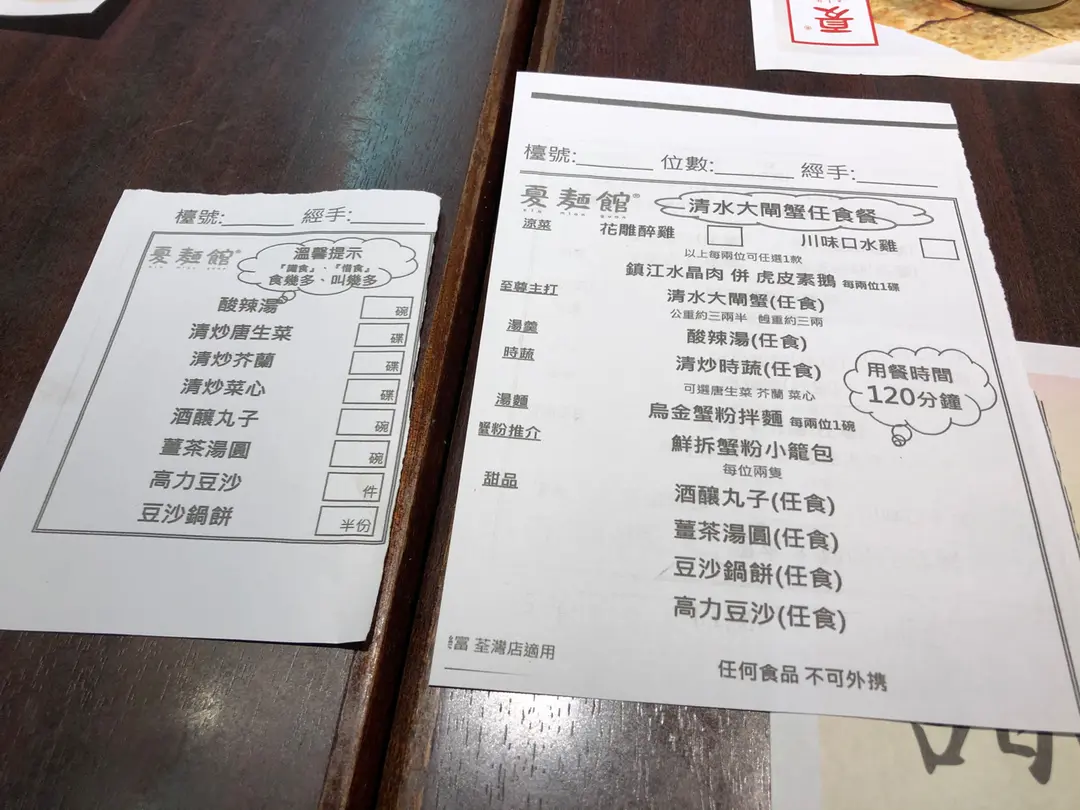 檯號:______ 經手:______
夏麵館®
XIA MIAN GUAN
溫馨提示
『識食』、『惜食』
食幾多、叫幾多
酸辣湯 碗
清炒唐生菜 碟
清炒芥蘭 碟
清炒菜心 碟
酒釀丸子 碗
薑茶湯圓 碗
高力豆沙 件
豆沙鍋餅 半份
夏
檯號:______ 位數:______ 經手:______
夏麵館®
XIA MIAN GUAN
清水大閘蟹任食餐
涼菜 花雕醉雞 川味口水雞
以上每兩位可任選1款
鎮江水晶肉 併 虎皮素鵝 每兩位1碟
至尊主打 清水大閘蟹(任食)
公重約三兩半 乸重約三兩
湯羹 酸辣湯(任食)
時蔬 清炒時蔬(任食)
可選唐生菜 芥蘭 菜心
湯麵 烏金蟹粉拌麵 每兩位1碗
蟹粉推介 鮮拆蟹粉小籠包
每位兩隻
甜品 酒釀丸子(任食)
薑茶湯圓(任食)
豆沙鍋餅(任食)
高力豆沙(任食)
用餐時間
120分鐘
富 荃灣店適用
任何食品 不可外携